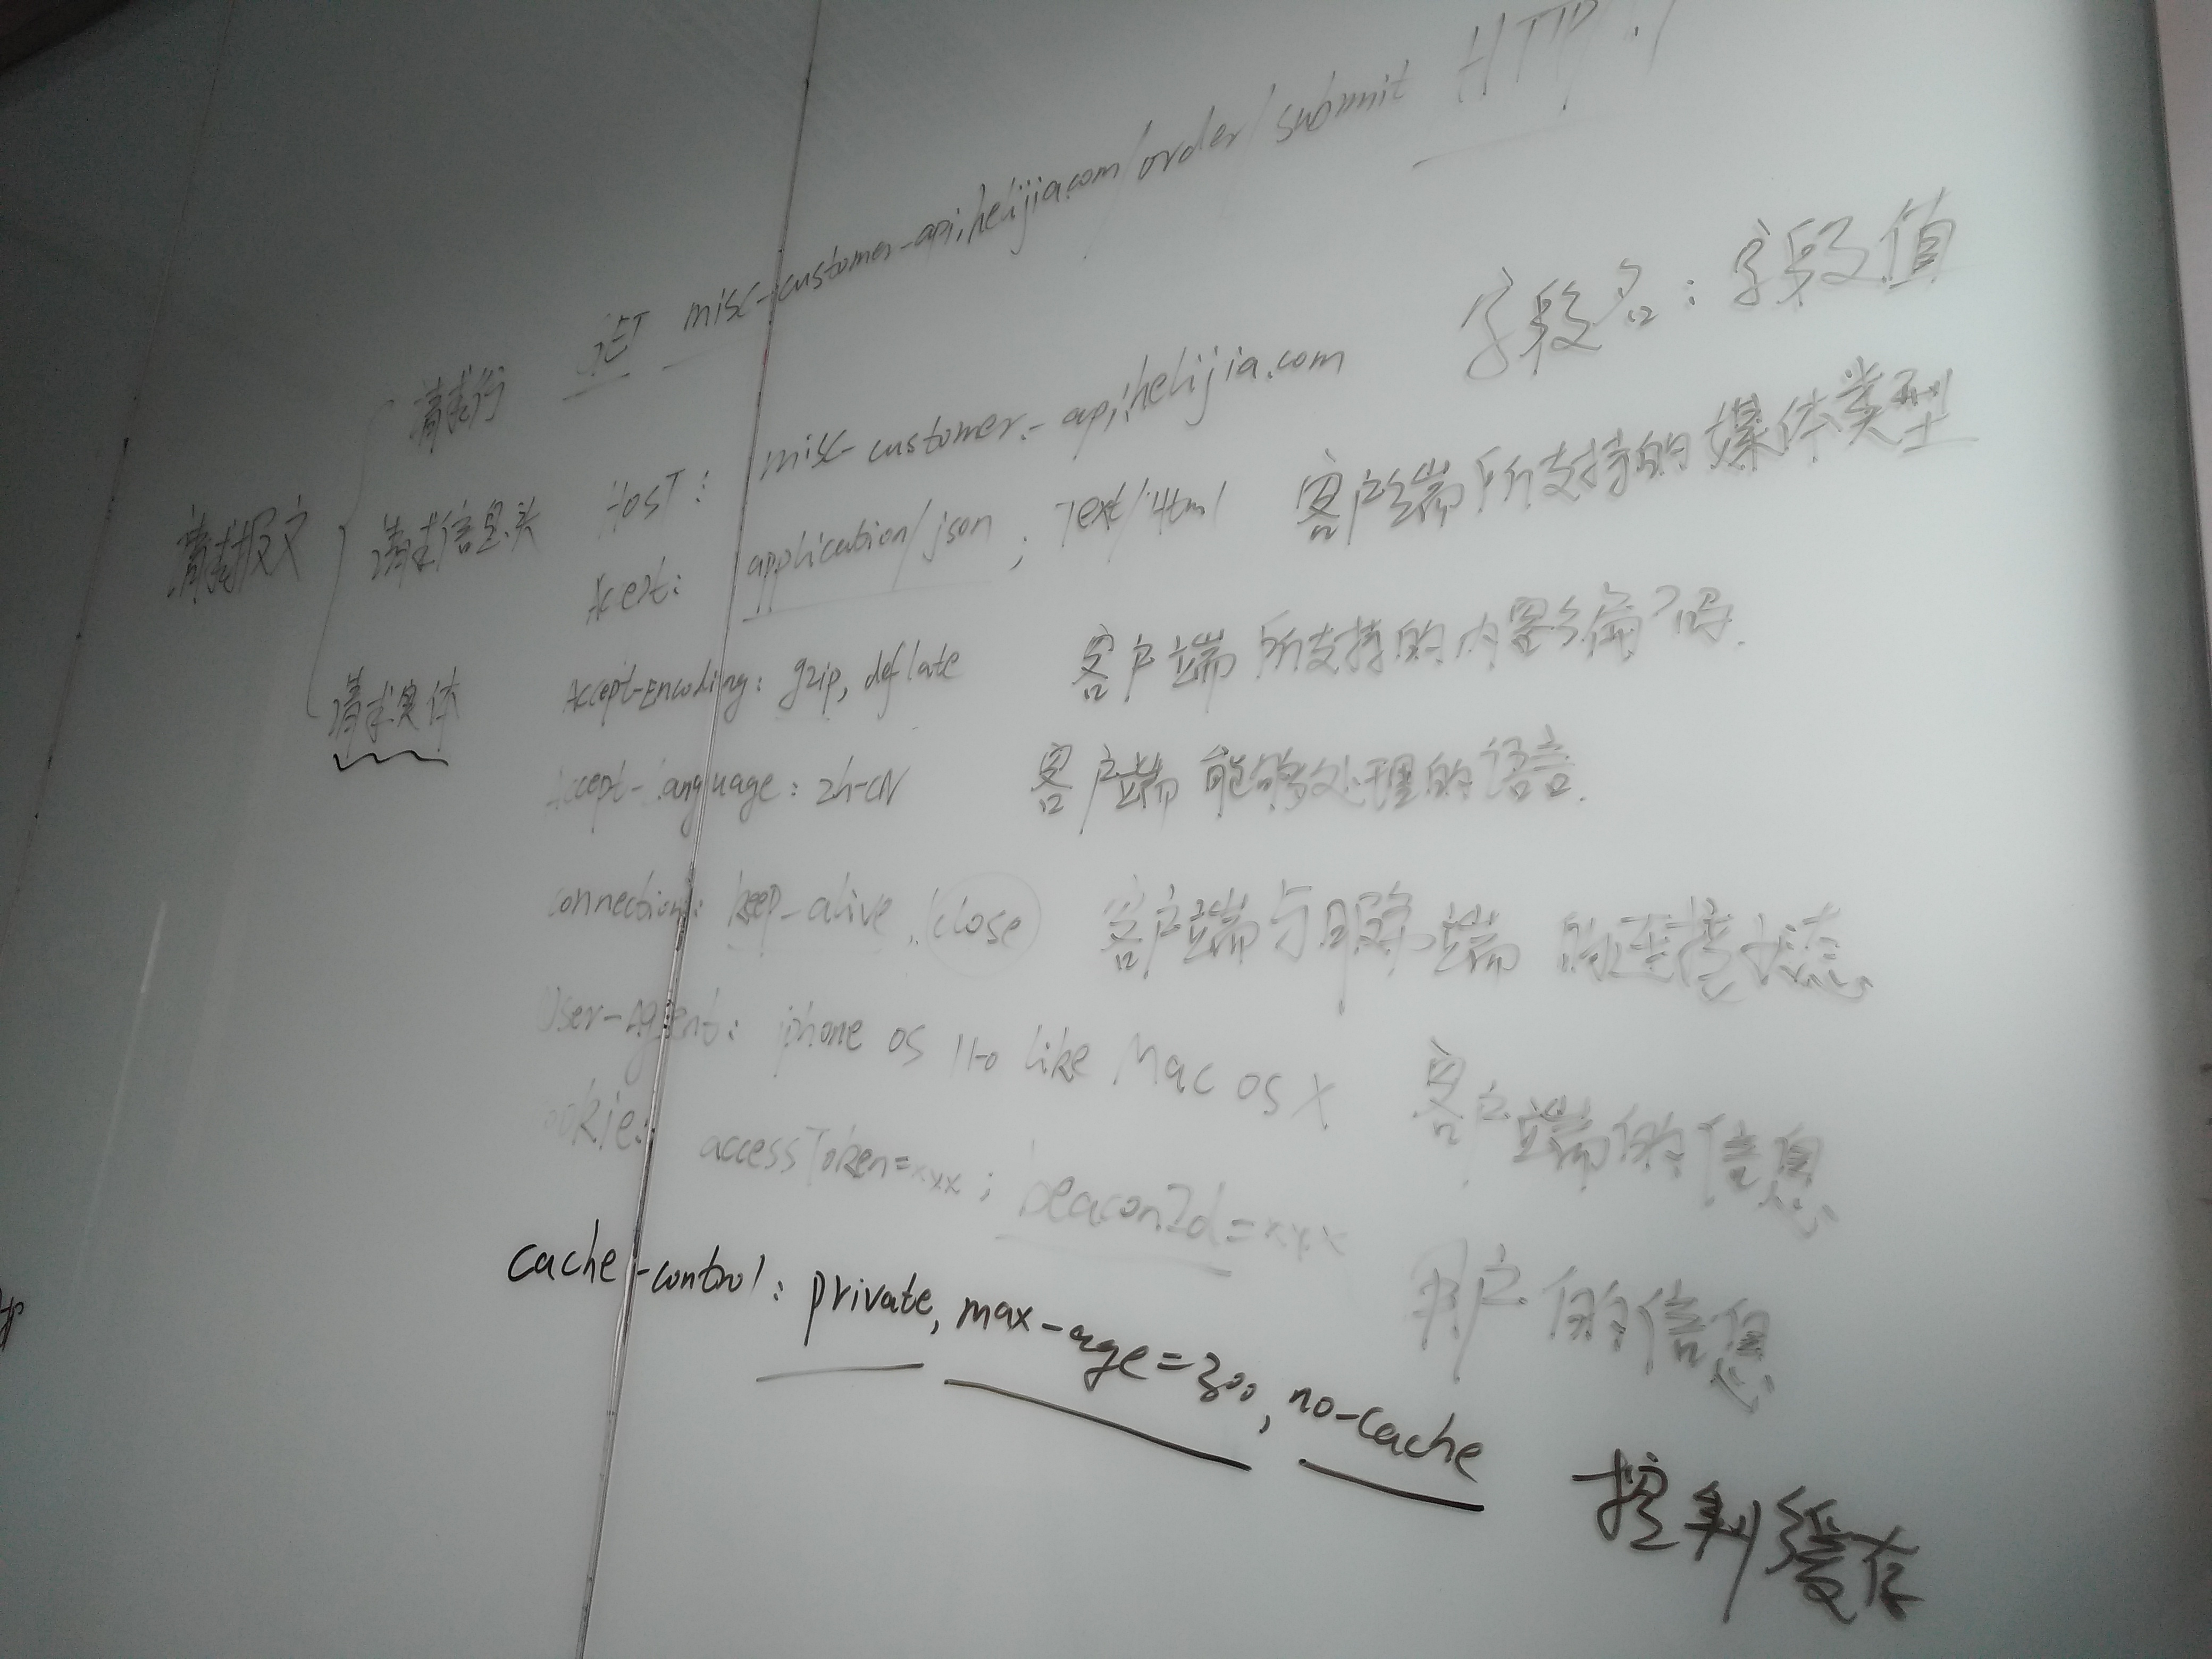 GET misc-customer-api.helijia.com/order/submit HTTP
字段名：字段值
请求报文
请求行
请求信息头
请求实体
HosT： misc-customer.-api.helijia.com
application/json ; Text/Html 客户端所支持的媒体类型
Accept-Encoding: gzip, deflate 客户端所支持的内容编码.
Accept-language: zh-CN 客户端能够处理的语言.
connection: keep-alive, close 客户端与服务端的连接状态
User-Agent: iphone OS like Mac OS X 客户端的信息
accessToken=xxx; beaconId=xxx 用户的信息
cache-control: private, max-age=300, no-cache 控制缓存